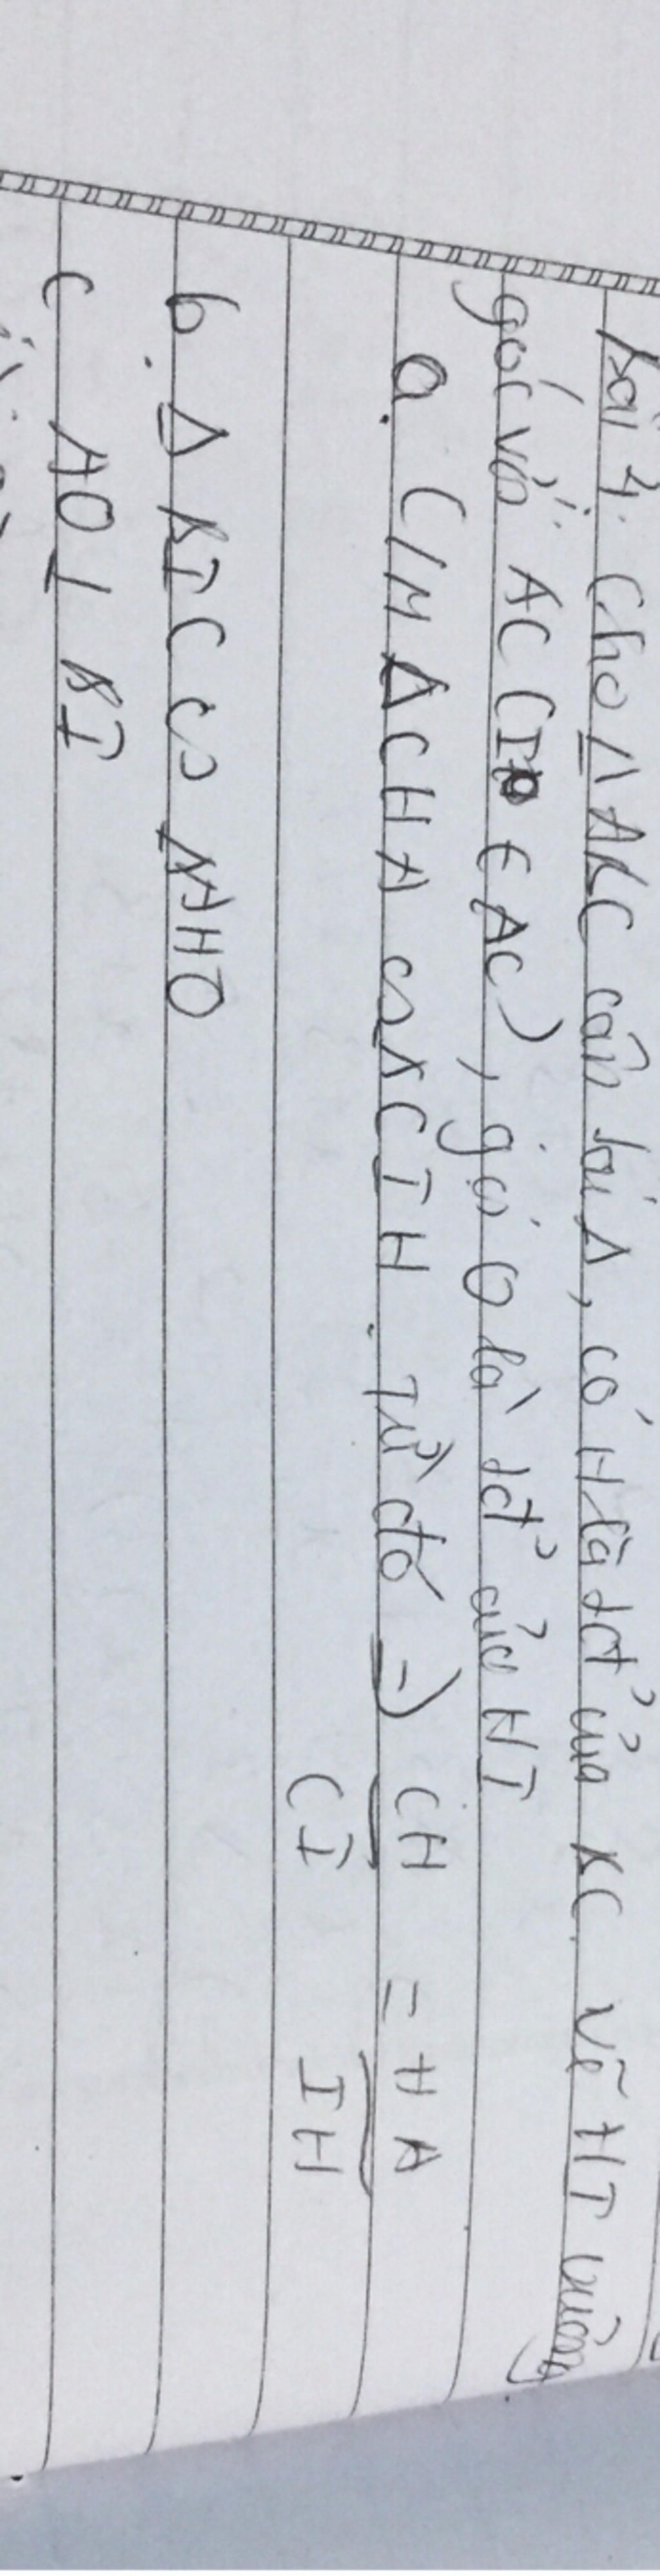 Bài 4. Cho Δ AKC cân tại A, có H là tđ' của KC. Vẽ HI vuông
góc với AC (I ∈ AC), gọi O là tđ' của HI
a. C/M ΔCHA ∽ ΔCIH. Từ đó => CH = HA
CI IH
b. Δ KIC ∽ ΔAHO
c AO ⊥ KI